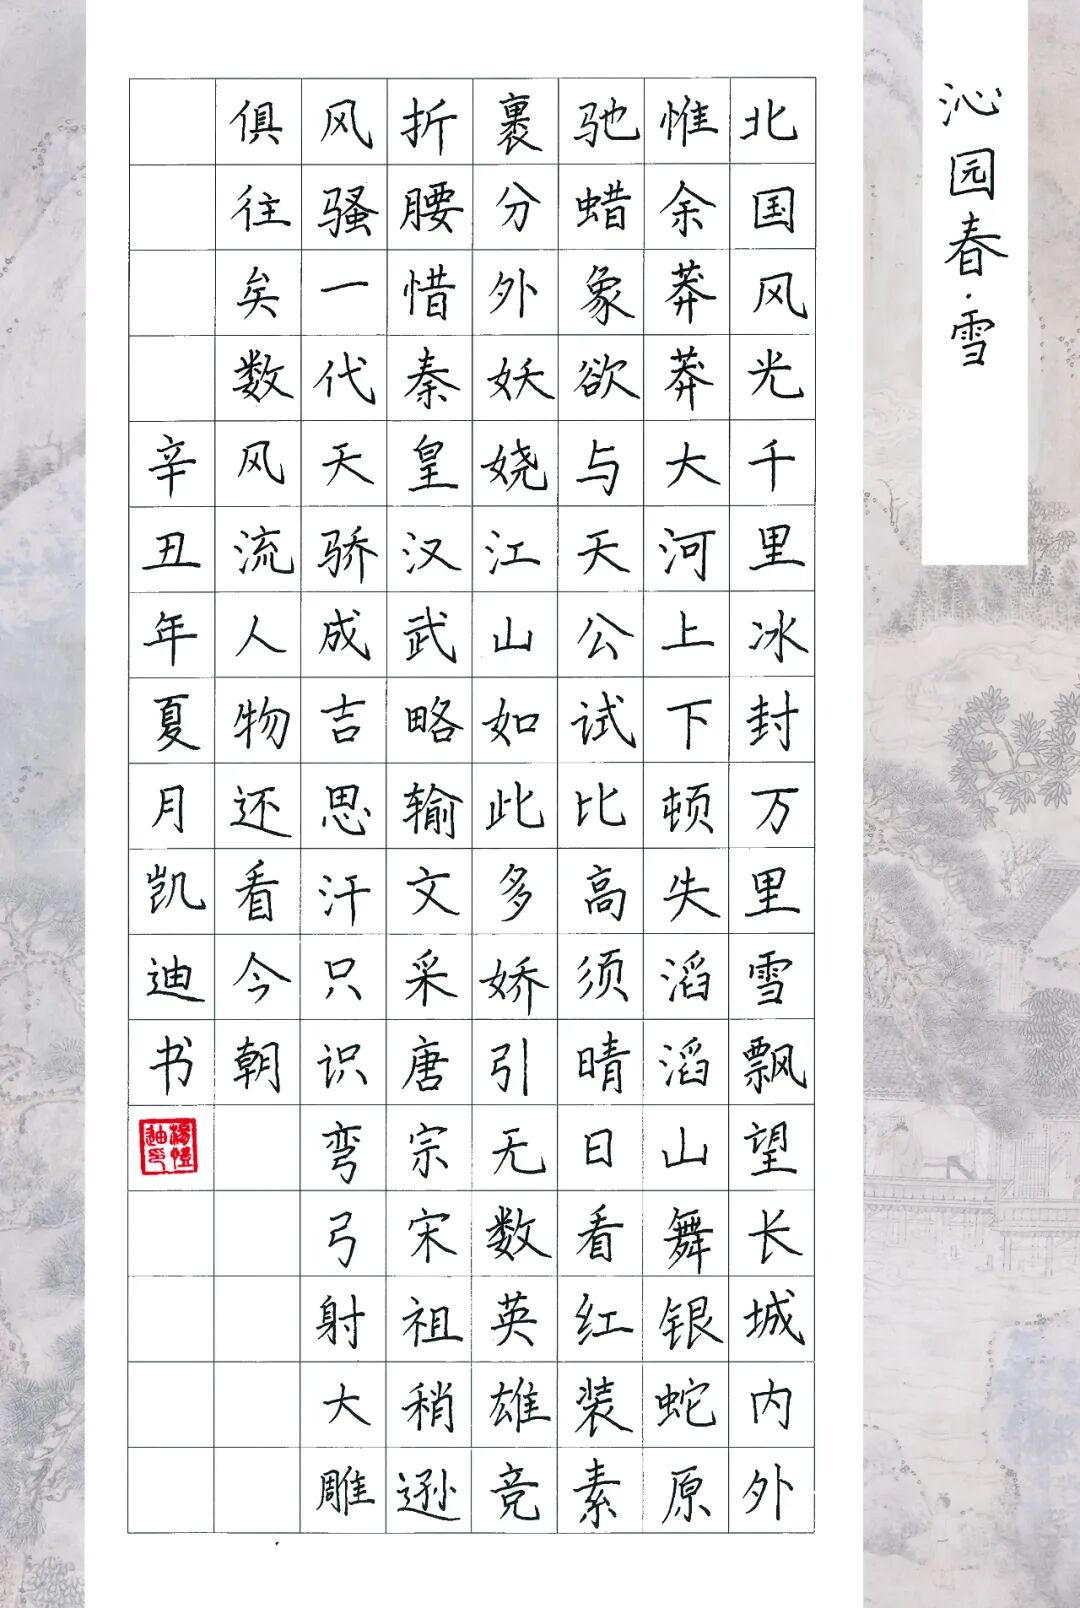 沁园春·雪
北国风光千里冰封万里雪飘望长城内外
惟余莽莽大河上下顿失滔滔山舞银蛇原
驰蜡象欲与天公试比高须晴日看红装素
裹分外妖娆江山如此多娇引无数英雄竞
折腰惜秦皇汉武略输文采唐宗宋祖稍逊
风骚一代天骄成吉思汗只识弯弓射大雕
俱往矣数风流人物还看今朝
辛丑年夏月凯迪书
楊愷迪印